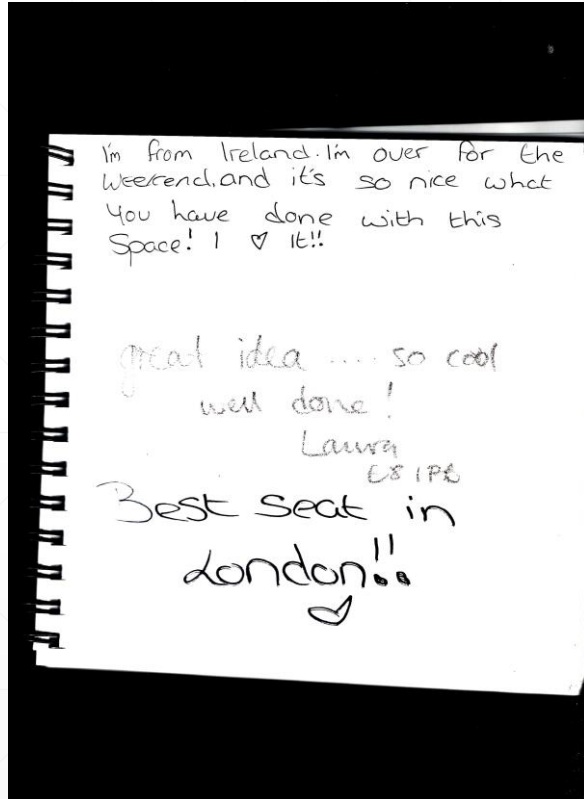 I'm from Ireland. I'm over for the
weekend, and it's so nice what
you have done with this
Space! I ♡ it!!
great idea .... so cool
well done!
Laura
E8 1PB
Best seat in
London!!
♡